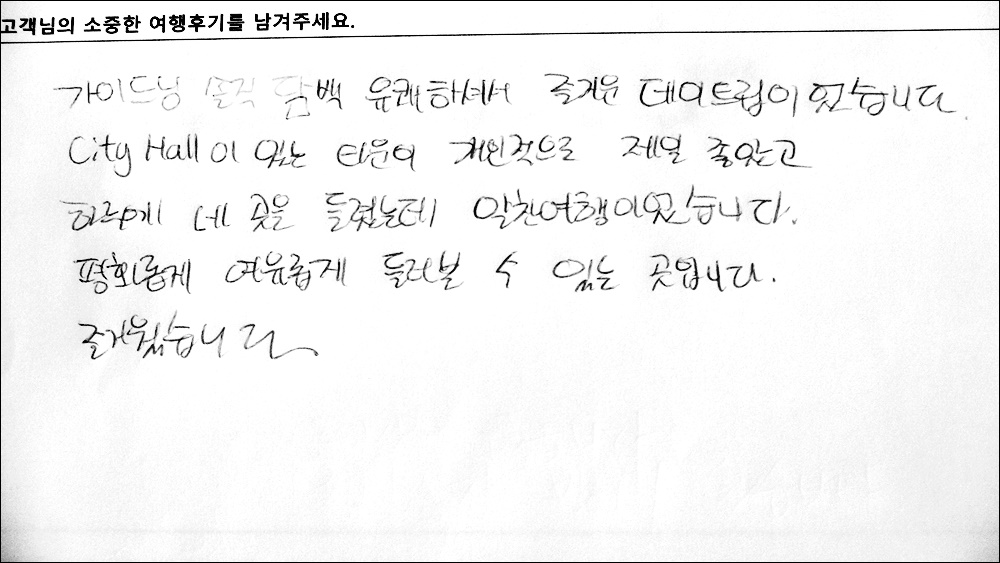 고객님의 소중한 여행후기를 남겨주세요.
가이드님 솔직 담백 유쾌하셔서 즐거운 데이트립이었습니다.
City Hall이 있는 타운이 개인적으로 제일 좋았고
하루에 네 곳을 들렀는데 알찬여행이었습니다.
평화롭게 여유롭게 둘러볼 수 있는 곳입니다.
즐거웠습니다.